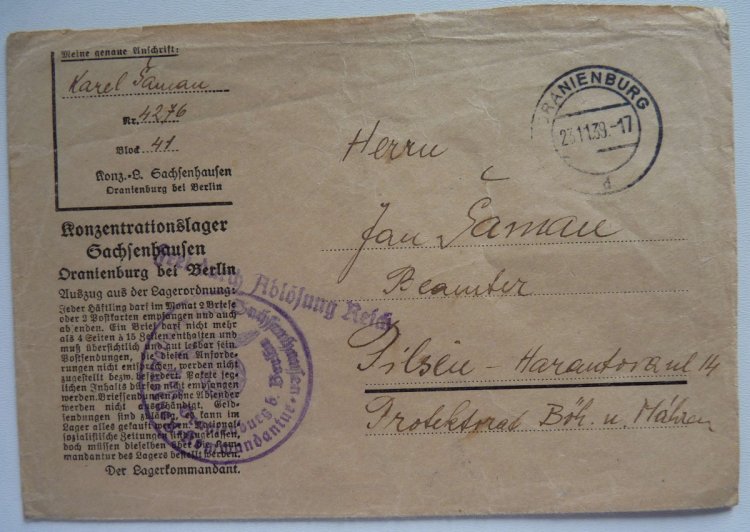 Meine genaue Anschrift:
Karel Šaman
Nr. 4276
Block 41
Konz.-L. Sachsenhausen
Oranienburg bei Berlin
Konzentrationslager
Sachsenhausen
Oranienburg bei Berlin
Auszug aus der Lagerordnung:
Jeder Häftling darf im Monat 2 Briefe
oder 2 Postkarten empfangen und auch
ab enden. Ein Brief darf nicht mehr
als 4 Seiten à 15 Zeilen enthalten und
muß übersichtlich und gut lesbar sein.
Postsendungen, die diesen Anforde-
rungen nicht entsprechen, werden nicht
zugestellt bezw. befördert. Pakete jeg-
lichen Inhalts dürfen nicht empfangen
werden. Briefsendungen ohne Absender
werden nicht ausgehändigt. Geld-
sendungen sind zulässig, es kann im
Lager alles gekauft werden. National-
sozialistische Zeitungen sind zugelassen,
doch müssen dieselben über die Kom-
mandantur des Lagers bestellt werden.
Der Lagerkommandant.
durch Ablösung Reich
Sachsenhausen
Oranienburg b. Berlin
Kommandantur
ORANIENBURG
23.11.39.-17
d
Herrn
Jan Šaman
Beamter
Pilsen - ul 14
Protektorat Böh. u. Mähren